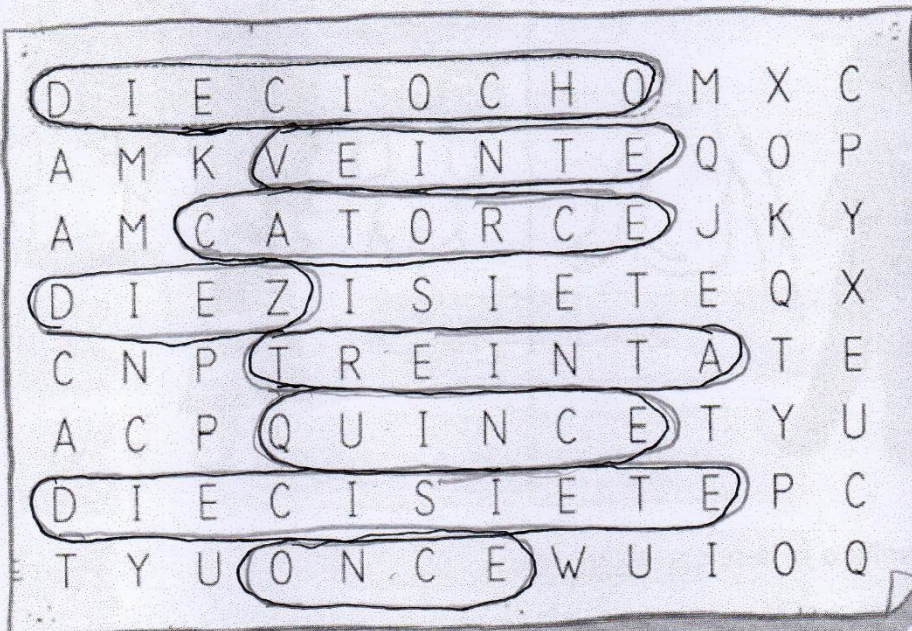 D I E C I O C H O M X C
A M K V E I N T E Q O P
A M C A T O R C E J K Y
D I E Z I S I E T E Q X
C N P T R E I N T A T E
A C P Q U I N C E T Y U
D I E C I S I E T E P C
T Y U O N C E W U I O Q